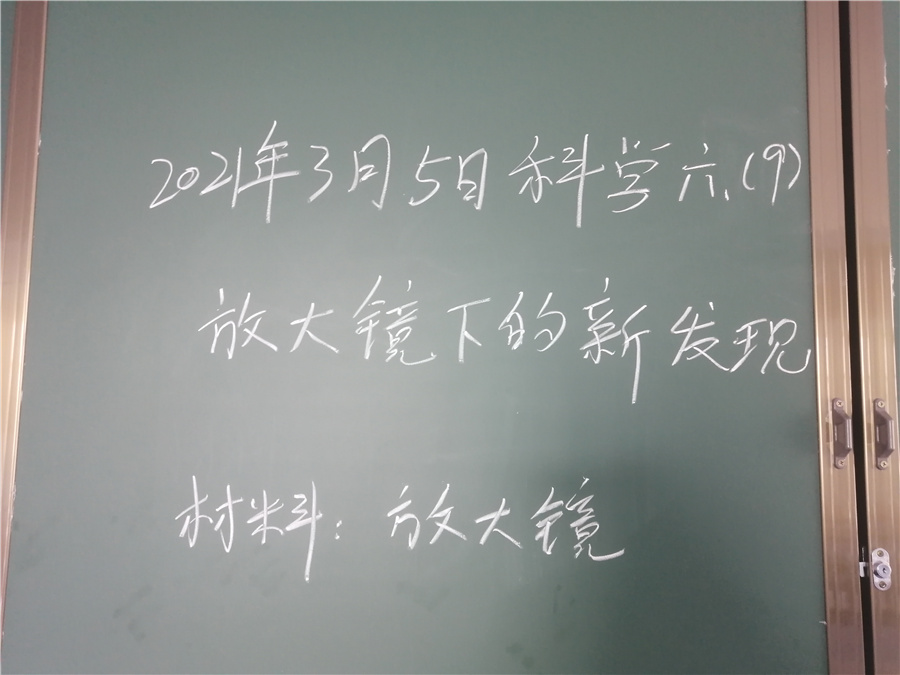 2021年3月5日科学六.(9)
放大镜下的新发现
材料:放大镜